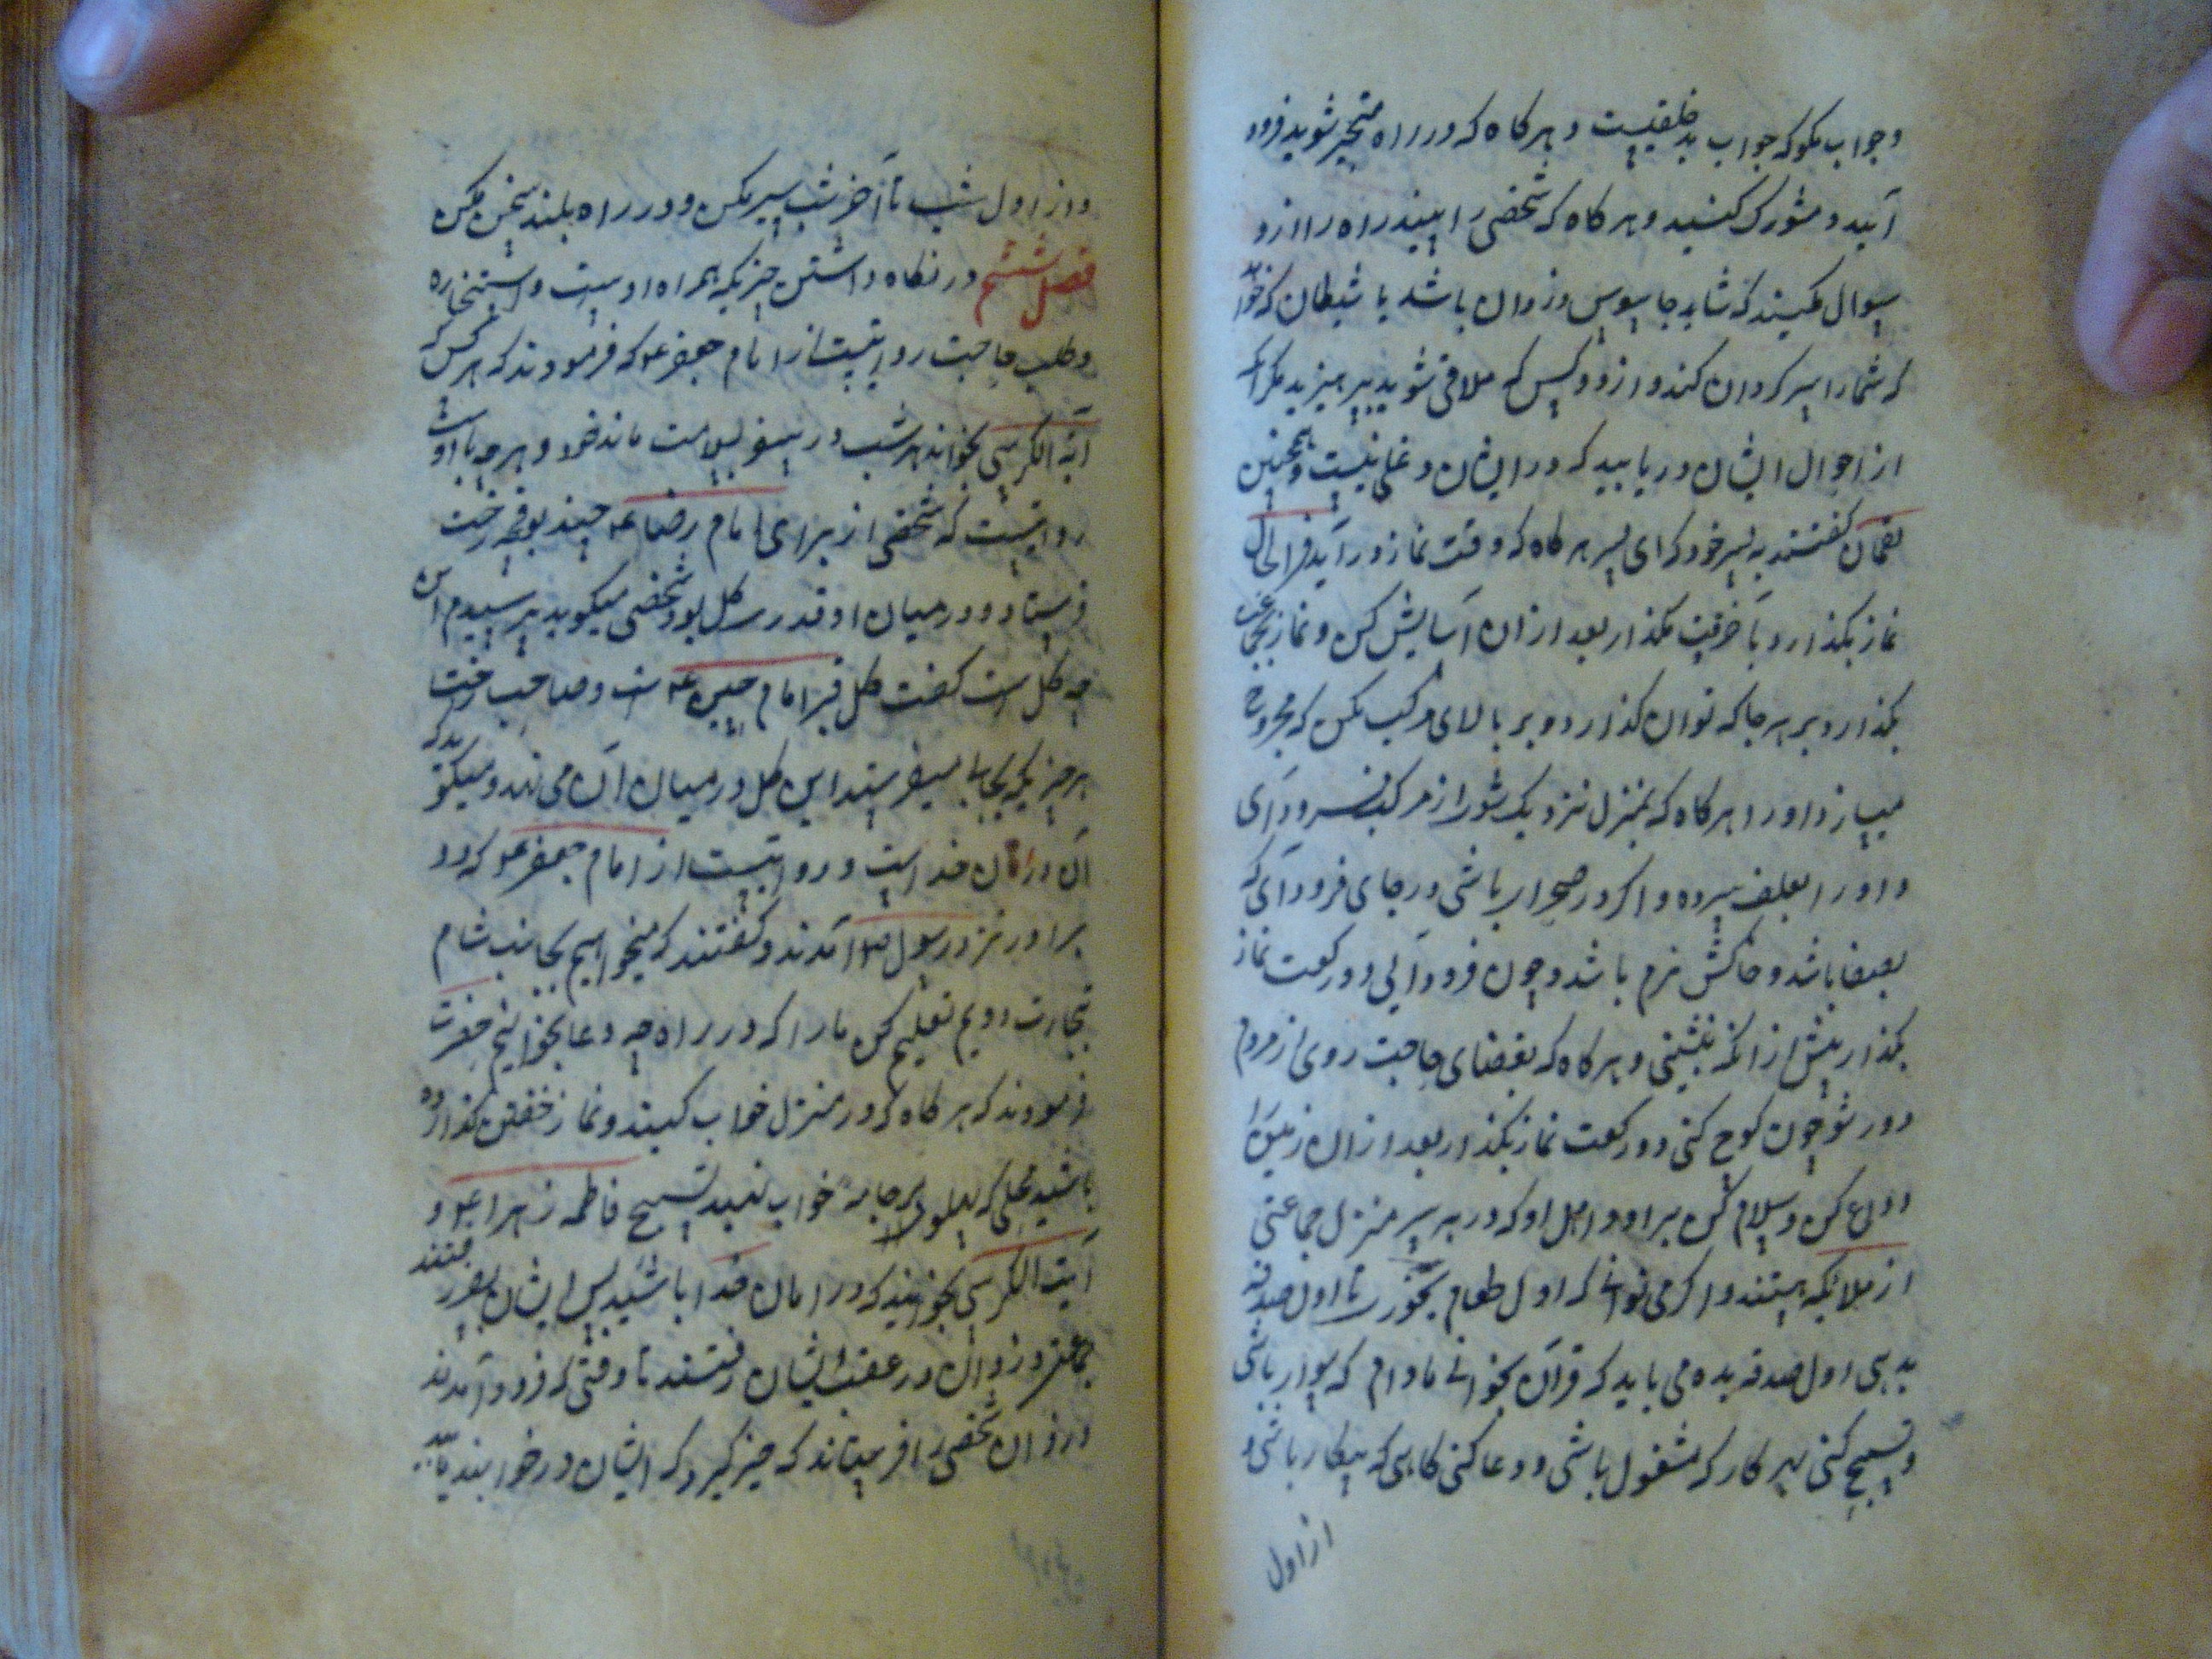 و جواب مکو که جواب بد خلقیست و هر کاه که در راه متحیر شوید فرود
آیید و مشورت کنید و هر کاه که شخصی را ببیند راه را از و
سوال مکنید که شاید جاسوس دزدان باشد یا شیطان که خواهد
که شما را سرکردان کند و از دو کس که ملاقی شوید بپرهیزید مکر آنکه
از احوال ایشان دریابید که در ایشان دغلی نیست و همچنین
لقمان کفتند به پسر خود که ای پسر هر کاه که وقت نماز در آید فی الحال
نماز بکذار و بآخر وقت مکذار بعد از ان آسایش کن و نماز بجماعت
بکذار و بر هر جا که توان کذارد و بر بالای مرکب مکن که مجروح
میسازد او را هر کاه که بمنزل نزدیک شوی از مرکب فرود آی
و او را بعلف سرده و اکر در صحرا باشی در جای فرود آی که
بصفا باشد و خاکش نرم باشد و چون فرود آیی دو رکعت نماز
بکذار پیش از آنکه بنشینی و هر کاه که بقضای حاجت روی از مردم
دور شو چون کوچ کنی دو رکعت نماز بکذار بعد از ان زمین را
وداع کن و سلام کن بر او و اهل او که در هر سر منزل جماعتی
از ملائکه هستند و اکر می توانی که اول طعام نخوری تا اول صدقه
بدهی اول صدقه بده می باید که قرآن بخوانی مادام که سوار باشی
و تسبیح کنی بهر کار که مشغول باشی و دعا کنی کاهی که بیکار باشی و
از اول
و از اول شب تا آخر شب سیر مکن و در راه بلند سخن مکن
فصل ششم در نکاه داشتن چیزیکه همراه اوست و استخاره
و طلب حاجت روایتست از امام جعفر ع که فرمودند که هر کس که
آیة الکرسی بخواند هر شب در سفر بسلامت ماند خود و هر چه با اوست
روایتست که شخصی از برای امام رضا ع چند بوقچه رخت
فرستاد و در میان او قدری کل بود شخصی میکوید پرسیدم این
چه کل است کفت کل قبر امام حسین ع است و صاحب رخت
هر چیزیکه بجایی میفرستد این کل در میان آن می نهد و میکوید که
آن در امان خداست و روایتست از امام جعفر ع که دو
برادر نزد رسول خدا آمدند و کفتند که میخواهیم بجانب شام
تجارت رویم تعلیم کن ما را که در راه چه دعا بخوانیم حضرت
فرمودند که هر کاه که در منزل خواب کنید و نماز خفتن کذارده
باشید بر جامه خواب نهید تسبیح فاطمه زهرا ع و
آیت الکرسی بخوانید که در امان خدا باشید پس ایشان بسفر رفتند
جماعتی دزدان در عقب ایشان رفتند تا وقتی که فرود آمدند
دزدان شخصی را فرستاند که چیز کیرد که ایشان در خوابند یا بیدار